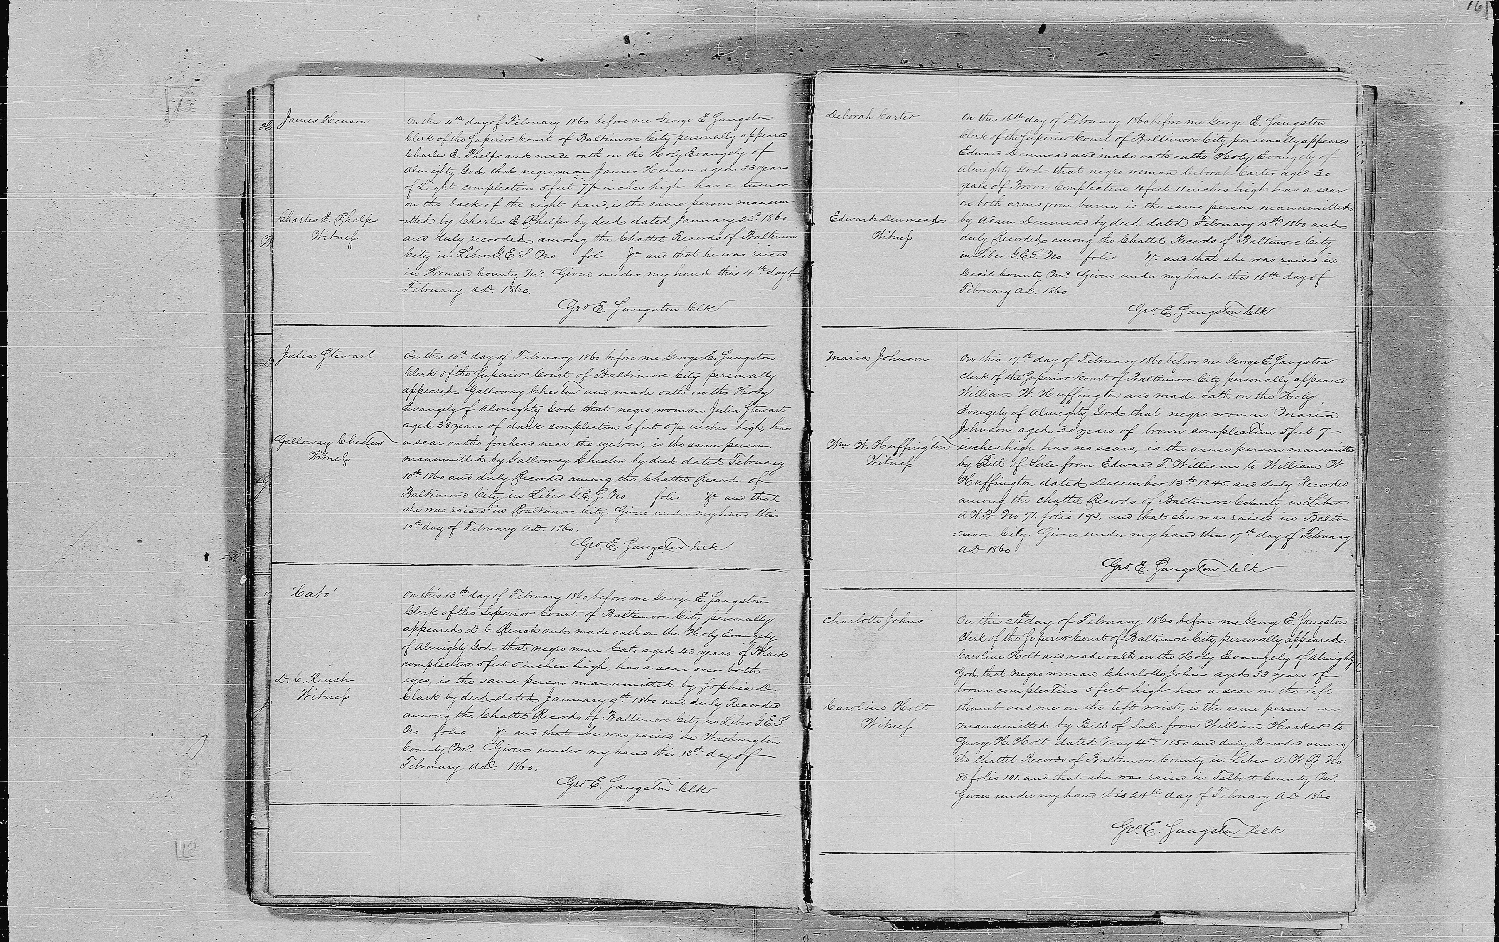 James Henson
On the 4th day of February 1860 before me George E. Sangston
Clerk of the Superior Court of Baltimore City personally appears
Charles E. Phelps and made oath on the Holy Evangely of
Almighty God that negro man James Henson aged 33 years
of Light complexion 5 feet 7 inches high has a
on the back of the right hand, is the same person manumi
Charles E. Phelps
Witness
-tted by Charles E. Phelps by deed dated January 23d 1860
and duly recorded among the Chattel Records of Baltimore
City in Liber G.E.S. No folio &c and that he was raised
in Howard County Md. Given under my hand this 4th day of
February A.D. 1860.
Geo E. Sangston Clk
Julia Stewart
On this 10th day of February 1860 before me George E. Sangston
Clerk of the Superior Court of Baltimore City personally
appeared Galloway Cheston and made oath on the Holy
Evangely of Almighty God that negro woman Julia Stewart
aged 38 years of dark complexion 5 feet inches high has
Galloway Cheston
Witness
a scar on the forehead near the eyebrow, is the same person
manumitted by Galloway Cheston by deed dated February
10th 1860 and duly Recorded among the Chattel Records of
Baltimore City in Liber G.E.S. No folio &c and that
she was raised in Baltimore City. Given under my hand this
10th day of February A.D. 1860.
Geo E. Sangston Clk
Cato
On this 13th day of February 1860 before me George E. Sangston
Clerk of the Superior Court of Baltimore City personally
appeared D. C. and made oath on the Holy Evangely
of Almighty God that negro man Cato aged 43 years of Black
complexion 5 feet 5 inches high has a scar over both
D. C.
Witness
eyes, is the same person manumitted by Sophia
Clark by deed dated January 9th 1860 and duly Recorded
among the Chattel Records of Baltimore City in Liber G.E.S
No folio &c and that he was raised in Washington
County Md. Given under my hand this 13th day of
February A.D. 1860.
Geo E. Sangston Clk
Deborah Carter
On this 16th day of February 1860 before me George E. Sangston
Clerk of the Superior Court of Baltimore City personally appeared
Edward and made oath on the Holy Evangely of
Almighty God that negro woman Deborah Carter aged 30
years of Brown Complexion 4 feet 11 inches high has a scar
on both arms from burns, is the same person manumitted
Edward
Witness
by Adam by deed dated February 15th 1860 and
duly Recorded among the Chattel Records of Baltimore City
in Liber G.E.S. No folio &c and that she was raised in
Cecil County Md. Given under my hand this 16th day of
February A.D. 1860
Geo E. Sangston Clk
Maria Johnson
On this 17th day of February 1860 before me George E. Sangston
Clerk of the Superior Court of Baltimore City personally appeared
William W. Huffington and made oath on the Holy
Evangely of Almighty God that negro woman Maria
Johnson aged 30 years of brown complexion 5 feet 7
Wm W. Huffington
Witness
inches high has no scars, is the same person manumitted
by Bill of Sale from Edward S. to William W
Huffington dated December 13th 1845 and duly Recorded
among the Chattel Records of Baltimore County in Liber
A.W.B. No 71 folio 193, and that she was raised in Balti-
-more City. Given under my hand this 17th day of February
A.D. 1860
Geo E. Sangston Clk
Charlotte Johns
On this 24th day of February 1860 before me George E. Sangston
Clerk of the Superior Court of Baltimore City personally appeared
Caroline Holt and made oath on the Holy Evangely of Almighty
God that negro woman Charlotte Johns aged 33 years of
brown complexion 5 feet high has a scar on the left
Caroline Holt
Witness
thumb and one on the left wrist, is the same person
manumitted by Bill of Sale from William to
George H. Holt dated May 4th 1850 and duly Recorded among
the Chattel Records of Baltimore County in Liber A.W.B. No
folio 101 and that she was raised in Talbot County Md.
Given under my hand this 24th day of February A.D. 1860
Geo E. Sangston Clk